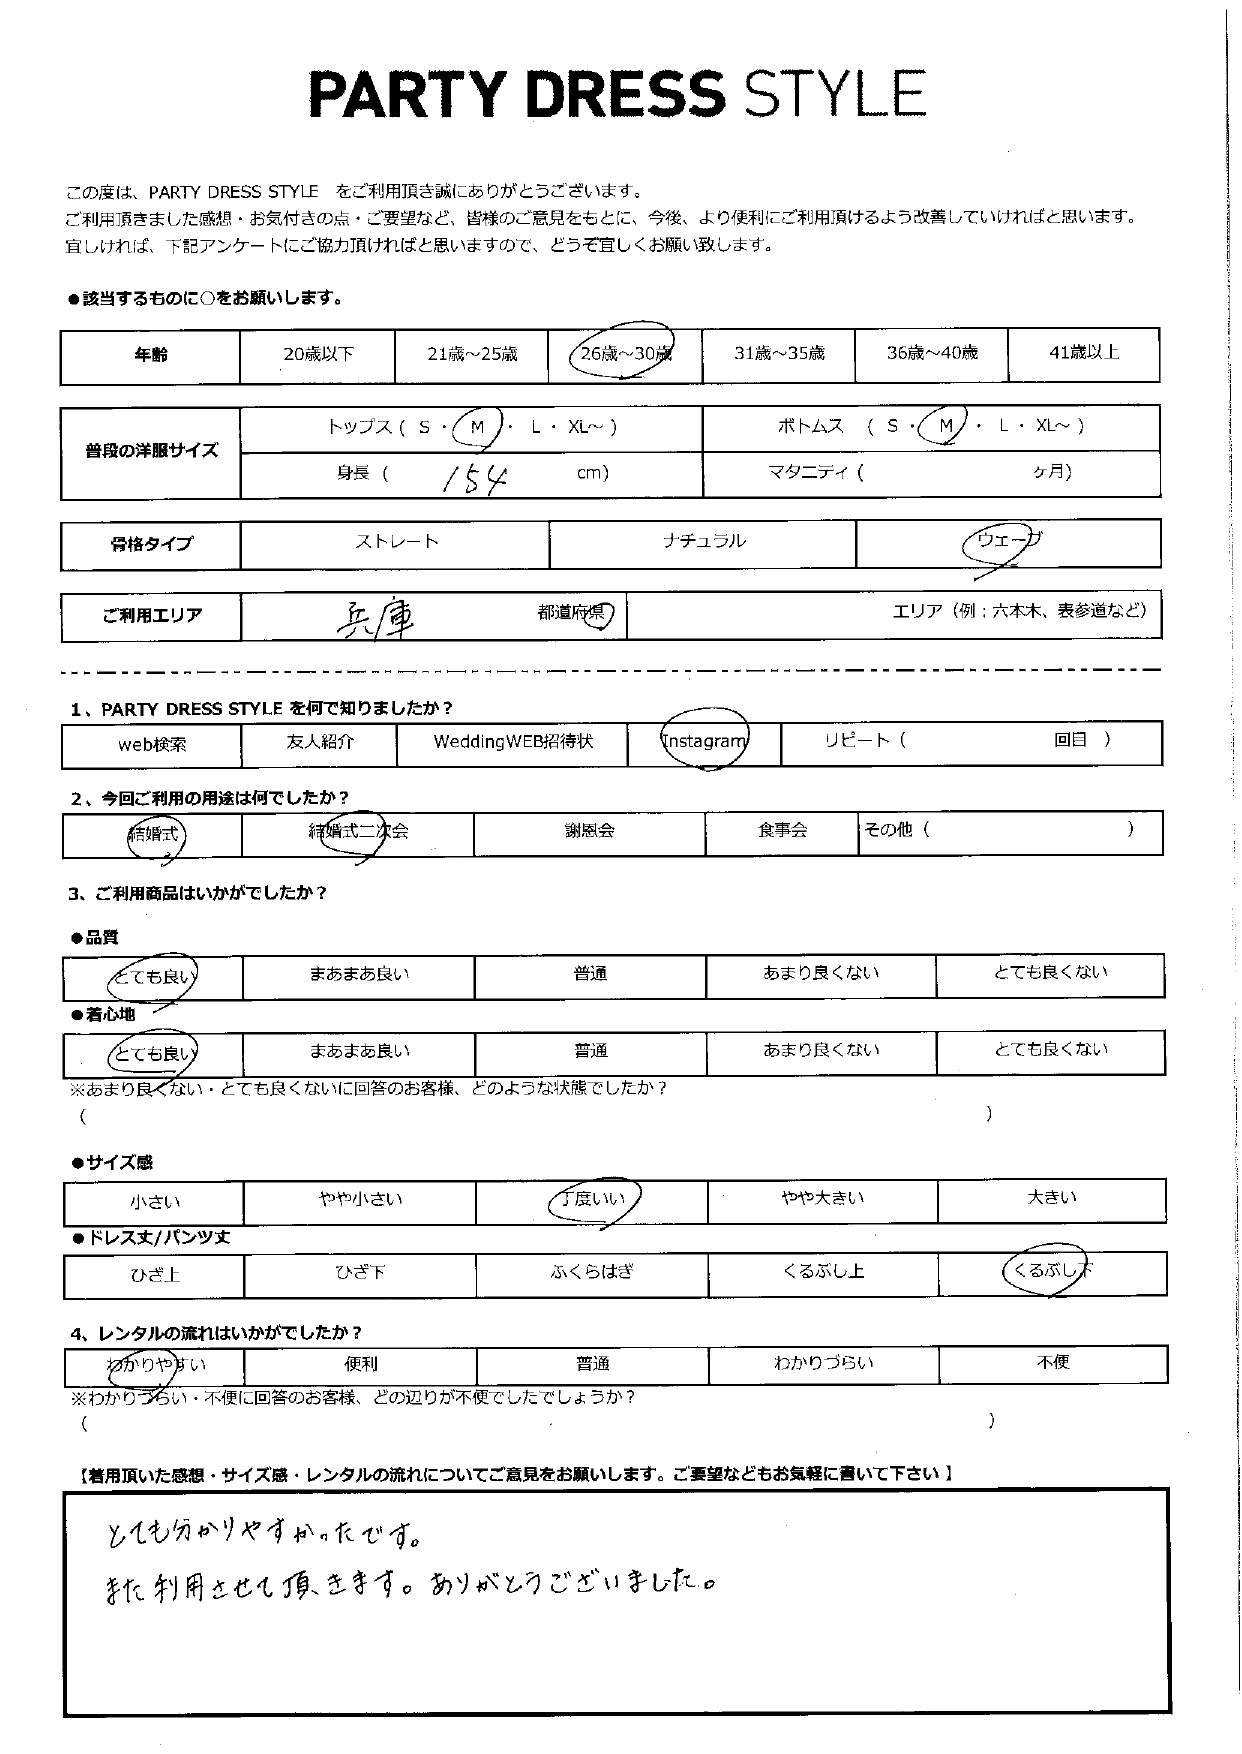 PARTY DRESS STYLE
この度は、PARTY DRESS STYLE　をご利用頂き誠にありがとうございます。
ご利用頂きました感想・お気付きの点・ご要望など、皆様のご意見をもとに、今後、より便利にご利用頂けるよう改善していければと思います。
宜しければ、下記アンケートにご協力頂ければと思いますので、どうぞ宜しくお願い致します。
●該当するものに○をお願いします。
年齢 20歳以下 21歳～25歳 26歳～30歳 31歳～35歳 36歳～40歳 41歳以上
普段の洋服サイズ トップス ( S ・ M ・ L ・ XL～ ) ボトムス ( S ・ M ・ L ・ XL～ )
身長 ( 154 cm) マタニティ ( ヶ月)
骨格タイプ ストレート ナチュラル ウェーブ
ご利用エリア 兵庫 都道府県 エリア（例：六本木、表参道など）
1、PARTY DRESS STYLE を何で知りましたか？
web検索 友人紹介 WeddingWEB招待状 Instagram リピート ( 回目 )
2、今回ご利用の用途は何でしたか？
結婚式 結婚式二次会 謝恩会 食事会 その他 ( )
3、ご利用商品はいかがでしたか？
●品質
とても良い まあまあ良い 普通 あまり良くない とても良くない
●着心地
とても良い まあまあ良い 普通 あまり良くない とても良くない
※あまり良くない・とても良くないに回答のお客様、どのような状態でしたか？
( )
●サイズ感
小さい やや小さい 丁度いい やや大きい 大きい
●ドレス丈/パンツ丈
ひざ上 ひざ下 ふくらはぎ くるぶし上 くるぶし下
4、レンタルの流れはいかがでしたか？
わかりやすい 便利 普通 わかりづらい 不便
※わかりづらい・不便に回答のお客様、どの辺りが不便でしたでしょうか？
( )
【着用頂いた感想・サイズ感・レンタルの流れについてご意見をお願いします。ご要望などもお気軽に書いて下さい 】
とても分かりやすかったです。
また利用させて頂きます。ありがとうございました。